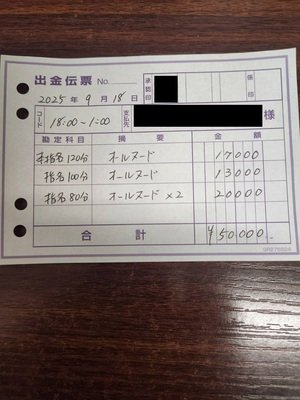 出金伝票 No.
承認印
係印
2025年9月18日
コード 18:00~1:00 支払先 様
勘定科目 摘要 金額
本指名120分 オールヌード 17000
指名100分 オールヌード 13000
指名80分 オールヌード×2 20000
合計 ¥50,000